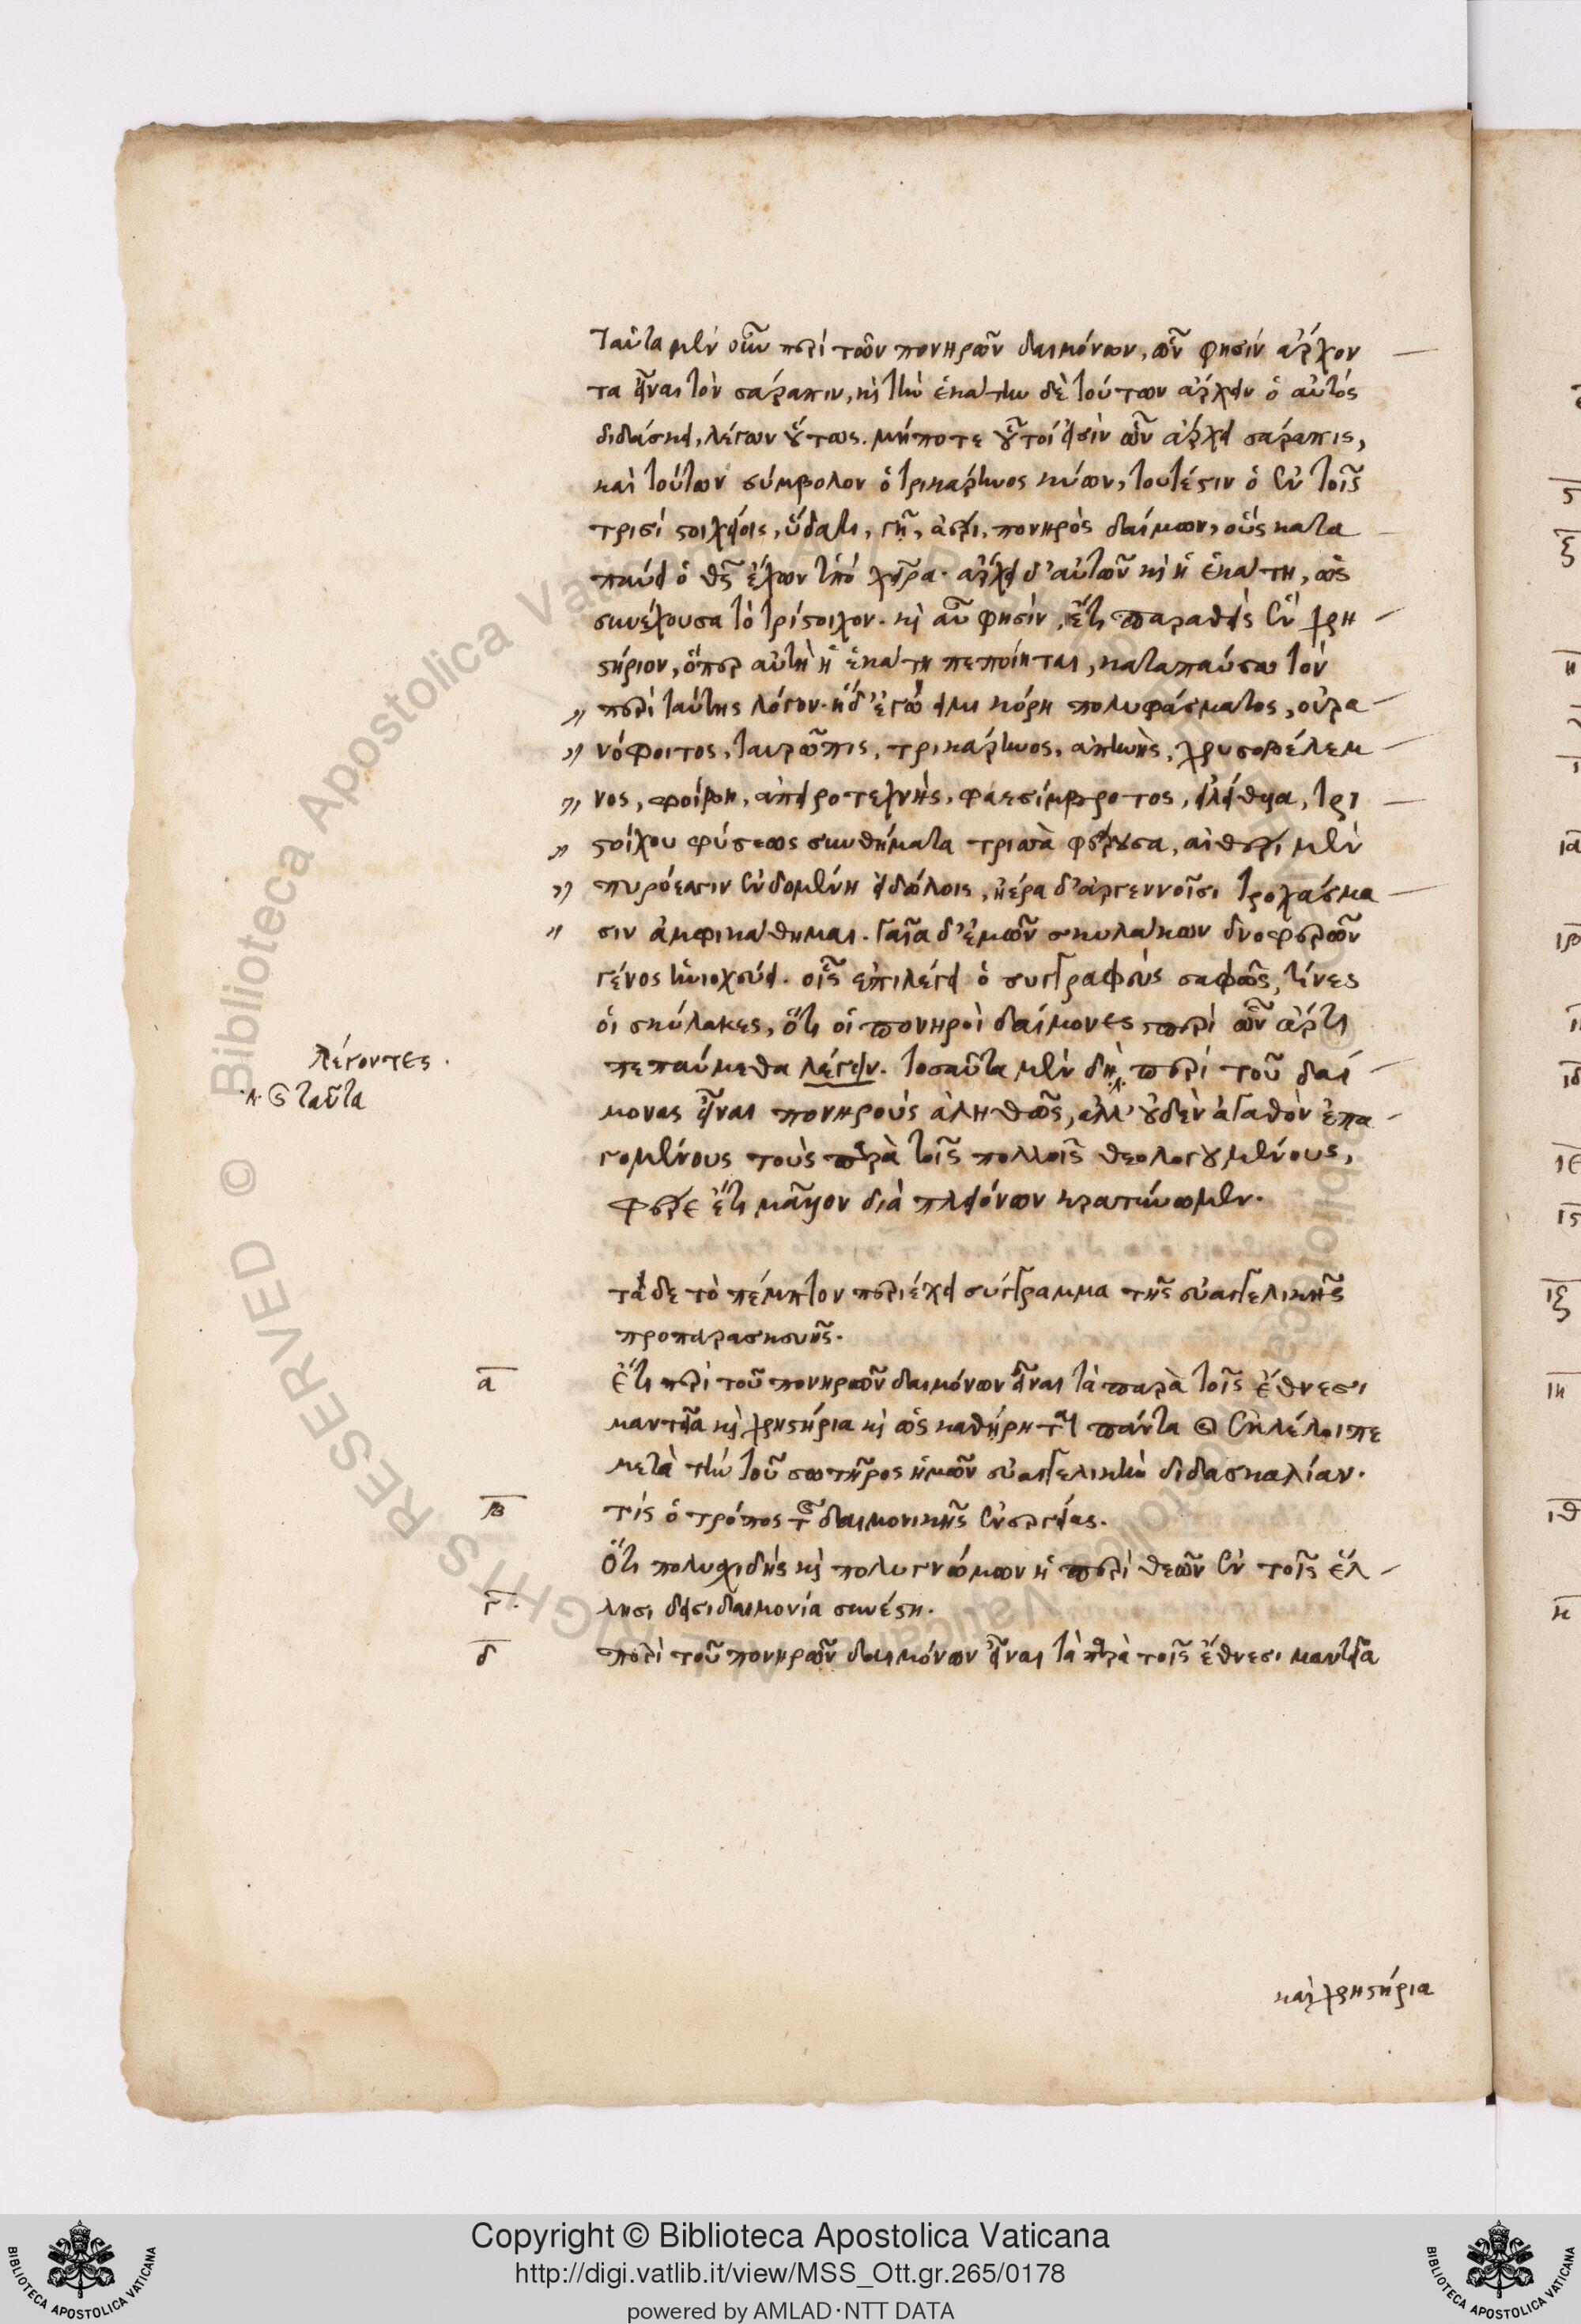 ταῦτα μὲν οὖν περὶ τῶν πονηρῶν δαιμόνων, ὧν φησὶν ἄρχον
τα εἶναι τὸν σάραπιν, κỳ τὴν ἑκάτην δὲ τούτων ἄρχειν ὁ αὐτός
διδάσκει, λέγων οὕτως. μήποτε οὗτοί εἰσὶν ὧν ἄρχει σάραπις,
καὶ τούτων σύμβολον ὁ τρικάρηνος κύων, τουτέστιν ὁ ἐν τοῖς
τρισὶ στοιχείοις, ὕδατι, γῆ, ἀέρι, πονηρὸς δαίμων, οὓς κατα
παύει ὁ θς ἔχων ὑπὸ χεῖρα. ἄρχει δ' αὐτῶν κὶ ἡ ἑκάτη, ὡς
συνέχουσα τὸ τρίστοιχον. κὶ αὖ φησὶν, ἔτι παραθεὶς ἓν χρη
στήριον, ὅπερ αὐτὴ ἡ ἑκάτη πεποίηται, καταπαύσω τὸν
" περὶ ταύτης λόγον. ἥδ' ἐγώ εἰμι κόρη πολυφάσματος, οὐρα
" νόφοιτος, ταυρῶπις, τρικάρηνος, ἀπηνὴς, χρυσοβέλεμ
" νος, φοίβη, ἀπειροτεχνὴς, φαεσίμβροτος, εἰλείθυα, τρι
" στοίχου φύσεως συνθήματα τρισσὰ φέρουσα, αἰθέρι μὲν
" πυρόεσσιν ἐειδομένη εἰδώλοις, ἠέρα δ' ἀργεννοῖσι τροχάσμα
" σιν ἀμφικάθημαι. γαῖα δ' ἐμῶν σκυλάκων δνοφερῶν
γένος ἡνιοχεύει. οἷς ἐπιλέγει ὁ συγγραφεὺς σαφῶς, τίνες
οἱ σκύλακες, ὅτι οἱ πονηροὶ δαίμονες περὶ ὧν ἄρτι
πεπαύμεθα λέγειν. τοσαῦτα μὲν δὴ περὶ τοῦ δαί
μονας εἶναι πονηροὺς ἀληθῶς, ἀλλ' οὐδὲν ἀγαθὸν ἐπα
γομένους τοὺς παρὰ τοῖς πολλοῖς θεολογουμένους,
φέρε ἔτι μᾶλλον διὰ πλειόνων κρατύνωμεν.
λέγοντες.
κ. ταῦτα
τάδε τὸ πέμπτον περιέχει σύγγραμμα τῆς εὐαγγελικῆς
προπαρασκευῆς.
α ἔτι περὶ τοῦ πονηρῶν δαιμόνων εἶναι τὰ παρὰ τοῖς ἔθνεσι
μαντεῖα κὶ χρηστήρια κὶ ὡς καθήρηται πάντα κ ἐκλέλοιπε
μετὰ τὴν τοῦ σωτῆρος ἡμῶν εὐαγγελικὴν διδασκαλίαν.
β τίς ὁ τρόπος τ δαιμονικῆς ἐνεργείας.
ὅτι πολυσχιδὴς κὶ πολυγνώμων ἡ περὶ θεῶν ἐν τοῖς ἕλ
γ. λησι δεισιδαιμονία συνέστη.
δ περὶ τοῦ πονηρῶν δαιμόνων εἶναι τὰ παρὰ τοῖς ἔθνεσι μαντεῖα
καὶ χρηστήρια
Copyright © Biblioteca Apostolica Vaticana
http://digi.vatlib.it/view/MSS_Ott.gr.265/0178
powered by AMLAD·NTT DATA